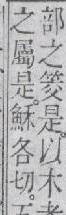 部之筊是。以木者
之屬是。穌各切。五